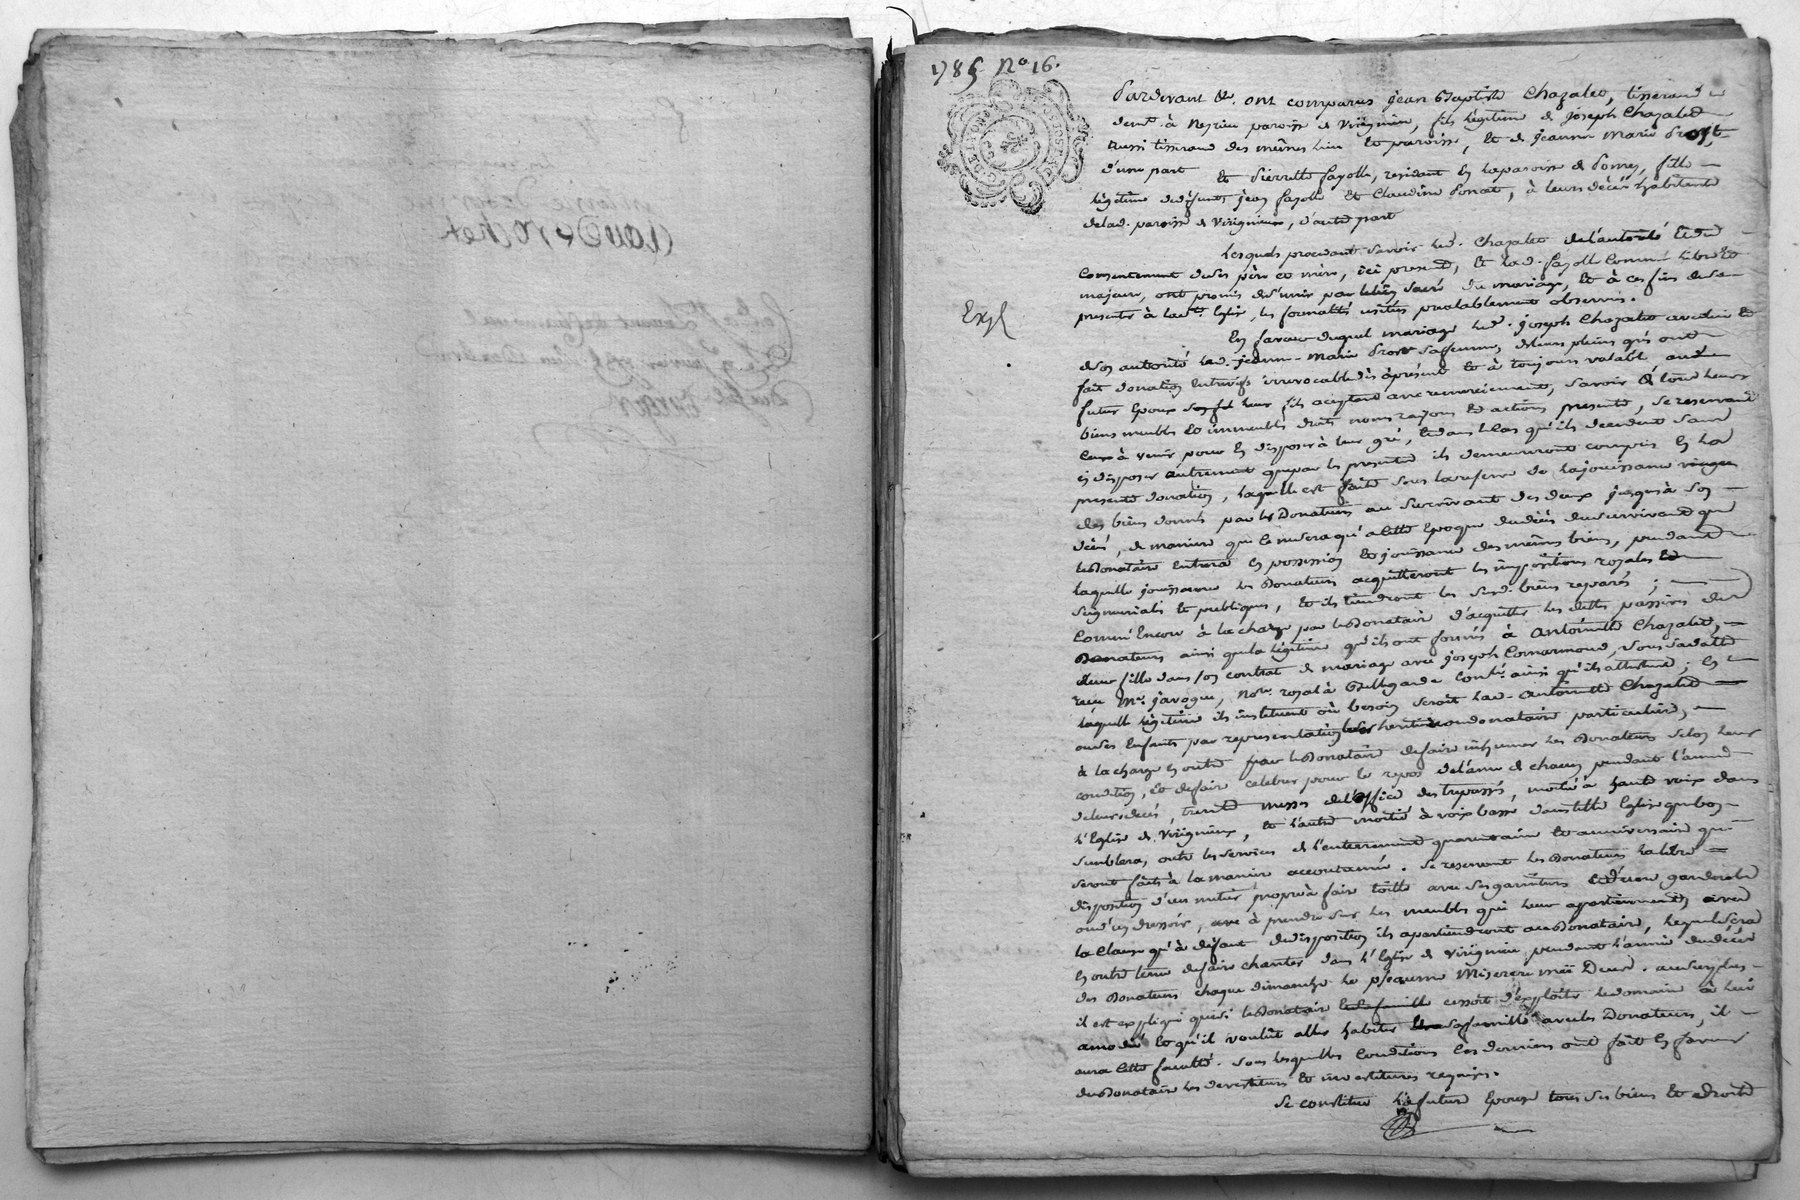 1785 No 16.
Pardevant &c. ont comparus jean Baptiste Chazalet, tisserand
demt. à Neyrieu paroisse de Virignieu, fils légitime de joseph Chazalet
aussi tisserand des mêmes lieu et paroisse, et de jeanne marie Prost,
d'une part et Pierrette fayolle, residant en la paroisse de Pomey, fille
légitime de défunts jean fayolle et Claudine Ponat, à leurs décès habitants
de lad. paroisse de Virignieux, d'autre part
Lesquels procedant savoir led. Chazalet de l'autorité et du
consentement de ses père et mère, ici presents, et lad. fayolle comme libre et
majeure, ont promis de s'unir par le lien sacré du mariage, et à ces fins de se
presenter à la ste. Eglise, les formalités usitées préalablement observées.
Expé
En faveur duquel mariage led. joseph Chazalet avec lui et
de son autorité lad. jeanne-marie Prost sa femme, de leurs pleins grés ont
fait donation entrevifs irrevocable dès à présent et à toujours valable aud.
futur Epoux leur fils aceptant avec remerciement, savoir de tous leurs
biens meubles et immeubles droits noms raisons et actions presents, se reservant
ceux à venir pour en disposer à leur gré, et dans le cas qu'ils décedent sans
en disposer autrement que par les presentes ils demeureront compris en la
presente donation, laquelle est faite sous la reserve de la jouissance viagere
des biens donnés par les Donateurs au survivant des deux jusqu'à son
décès, de maniere que ce ne sera qu'à cette Epoque du décès du survivant que
le Donataire entrera en possession et jouissance des mêmes biens, pendant
laquelle jouissance les Donateurs acquitteront les impositions royales et
seigneuriales et publiques, et ils tiendront les susd. biens reparés;
Comme Encore à la charge par le Donataire d'acquitter les dettes passives des
Donateurs ainsi que la légitime qu'ils ont formée à Antoinette Chazalet,
leur fille dans son contrat de mariage avec joseph Comarmond, sous sa datte
reçu Me. javogue, Nore. royal à Bellegarde contlé. ainsi qu'ils attestent; en
laquelle légitime ils instituent où besoin seroit lad. Antoinette Chazalet
ou ses Enfants par representation heritiere ou donataire particuliere,
à la charge en outre par le Donataire de faire inhumer les Donateurs selon leur
condition, et de faire celebrer pour le repos de l'ame de chacun pendant l'année
de leurs décès, trente messes de l'office des trepassés, moitié à haute voix dans
l'Eglise de Virignieux, et l'autre moitié à voix basse dans telle Eglise que bon
semblera, outre les services de l'enterrement quarantaine et anniversaire qui
seront faits à la maniere accoutumée. Se reservent les Donateurs la libre
disposition d'un métier propre à faire toille avec ses garnitures et d'une garderobe
ou d'un dressoir, à prendre sur les meubles qui leur apartiennent, avec
la clause qu'à défaut de disposition ils apartiendront au Donataire, lequel sera
en outre tenu de faire chanter dans l'Eglise de Virignieu pendant l'année du décès
des Donateurs chaque dimanche le pseaume Miserere meï Deus. au surplus
il est expliqué que si le Donataire cessoit d'exploiter le domaine à lui
amodié et qu'il voulût aller habiter avec sa famille avec les Donateurs, il
aura cette faculté. Sous lesquelles conditions ces derniers ont fait en faveur
du Donataire les devestitures et investitures requises.
Se constitue la future Epouse tous ses biens et droits